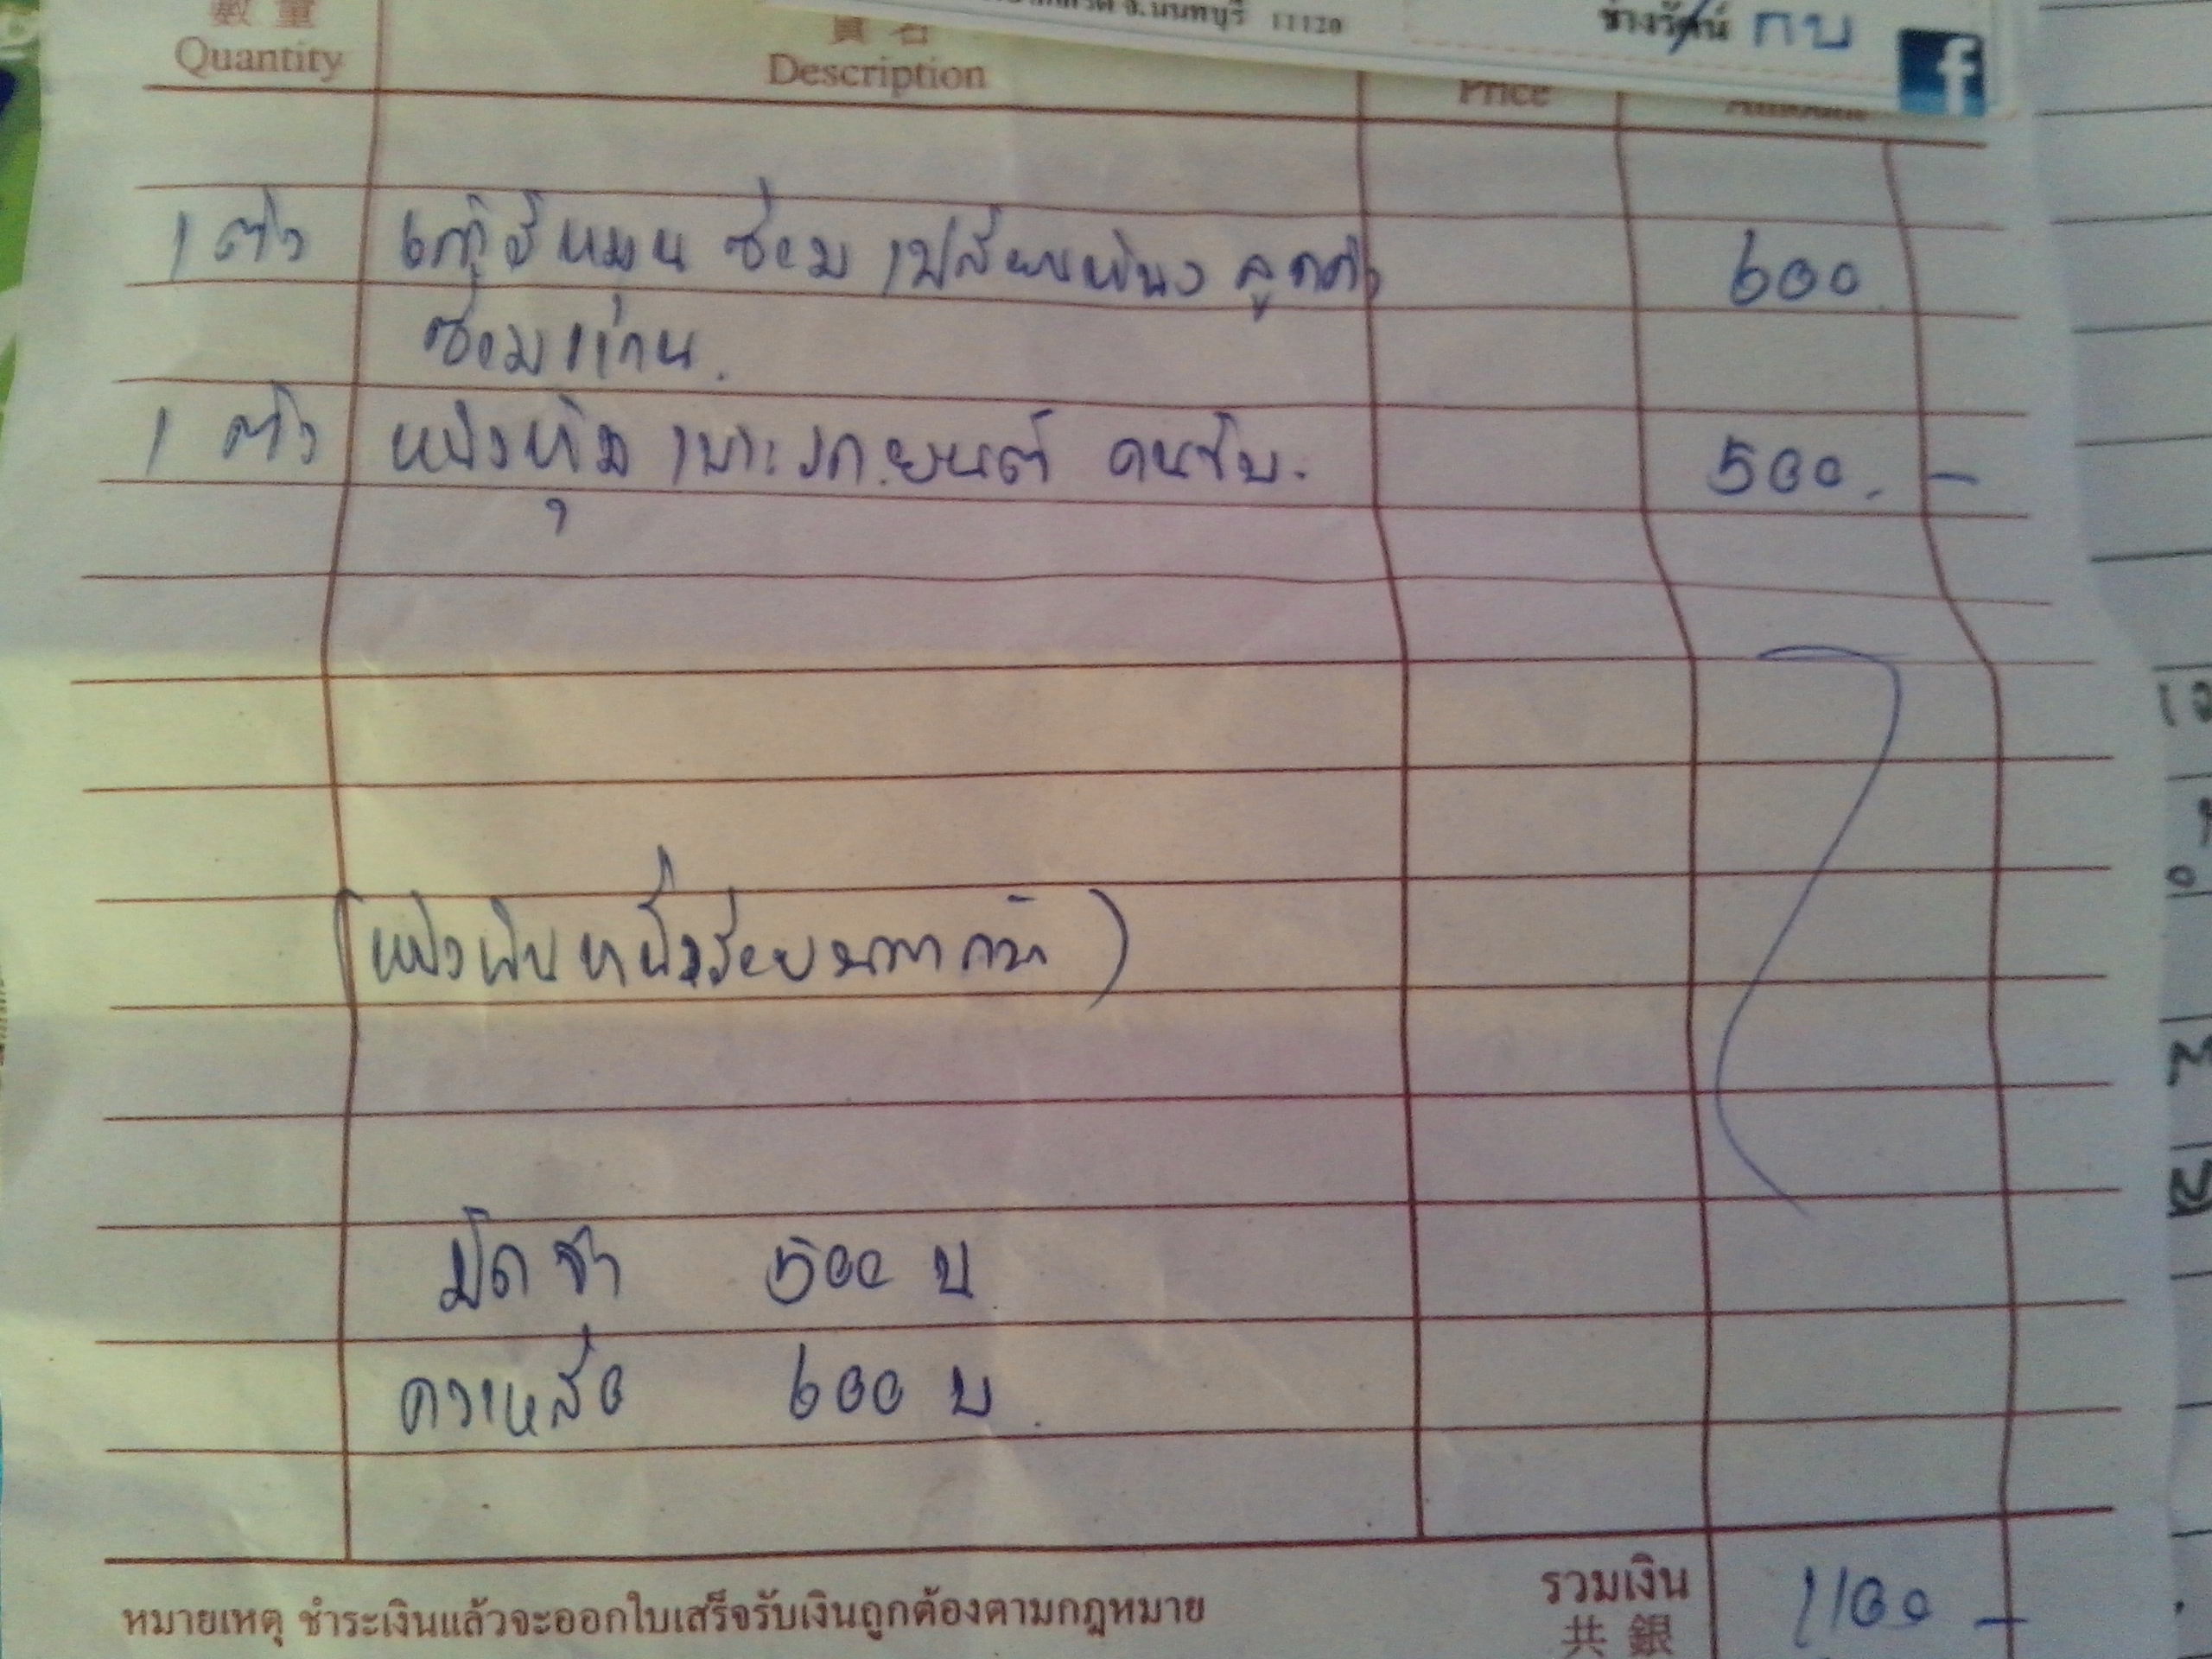 จ.นนทบุรี 11120
ช่างวัฒน์ กบ
f
數量 貨名
Quantity Description Price Amount
1 ตัว เก้าอี้หมุน ซ่อม เปลี่ยนหนัง ลูกค้า 600
ซ่อมแกน.
1 ตัว หนังหุ้ม เบาะรถยนต์ คนขับ. 500. –
(หนึ่งพันหนึ่งร้อยบาทถ้วน)
มัดจำ 500 บ
คงเหลือ 600 บ.
หมายเหตุ ชำระเงินแล้วจะออกใบเสร็จรับเงินถูกต้องตามกฎหมาย รวมเงิน 1100 –
共銀